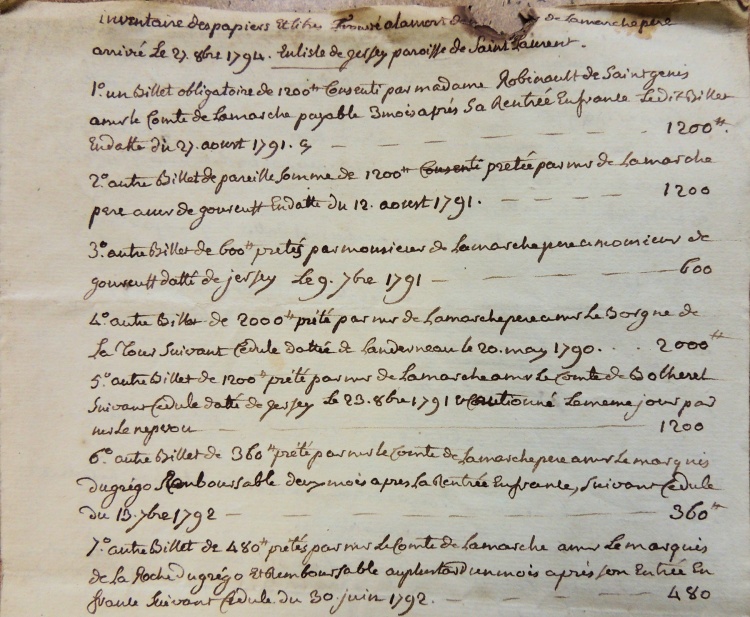 inventaire des papiers Et titres trouvé alamort de de Lamarche pere
arrivé Le 27. 8bre 1794. En lisle de jersey paroisse de Saint Laurent.
1.° un Billet obligatoire de 1200tt Consenti par madame Robinault de Saintgenis
amr le Comte de Lamarche payable 3 mois aprés Sa Rentrée En france Ledit Billet
En datte du 27. aoust 1791. — — — — 1200tt.
2.° autre Billet de pareille Somme de 1200tt Consenti pretée par mr de Lamarche
pere a mr de gouscutt En datte du 12. aoust 1791. — — — 1200
3.° autre Billet de 600tt pretés par monsieur de Lamarche pere a monsieur de
gouscutt datté de jersey Le 9. 7bre 1791 — — — 600
4.° autre Billet de 2000tt prété par mr de Lamarche pere a mr Le Borgne de
La Tour Suivant Cedule dattée de Landerneau le 20. may 1790. . . 2000tt
5.° autre Billet de 1200tt prété par mr de Lamarche a mr Le Comte de Bolheret
Suivant Cedule datté de jersey Le 23. 8bre 1791 Cautionné Le meme jour par
mr Le nepvou — — — 1200
6.° autre Billet de 360tt prété par mr le Comte de Lamarche pere a mr Le marquis
du grégo Remboursable deux mois apres La Rentrée En france, Suivant Cedule
du 13. 7bre 1792 — — — — 360tt
7.° autre Billet de 480tt pretés par mr Le Comte de Lamarche a mr Le marquis
de la Roche du grégo Et Remboursable au plus tard un mois aprés son Entrée En
france Suivant Cedule du 30. juin 1792. — — — 480